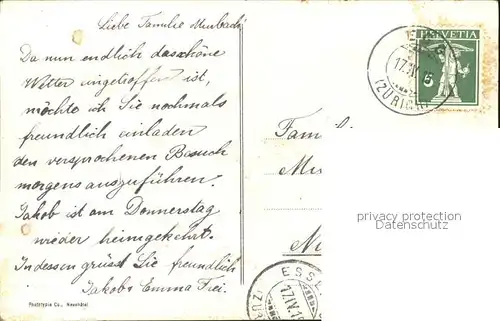 Liebe Familie Murbach
Da nun endlich das schöne
Wetter eingetroffen ist,
möchte ich Sie nochmals
freundlich einladen
den versprochenen Besuch
morgens auszuführen.
Jakob ist am Donnerstag
wieder heimgekehrt.
Indessen grüsst Sie freundlich
Jakob & Emma Frei.
Phototypie Co., Neuchâtel
HELVETIA
5
17.IV.
(ZÜRICH)
Fam
privacy protection
Datenschutz
17.IV.1